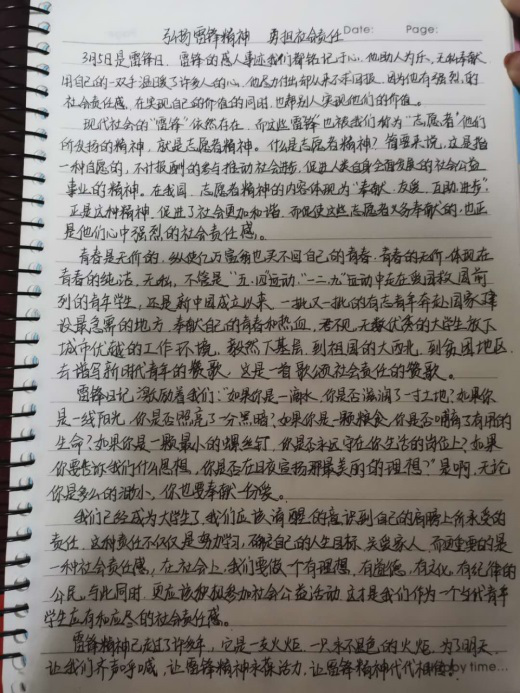 弘扬雷锋精神 勇担社会责任 Date: Page:
3月5日是雷锋日，雷锋的感人事迹我们都铭记于心，他助人为乐，无私奉献，
用自己的一双手温暖了许多人的心，他尽力付出却从来不求回报，因为他有强烈的
社会责任感，在实现自己的价值的同时，也帮别人实现他们的价值。
现代社会的“雷锋”依然存在，而这些雷锋也被我们称为“志愿者”他们
所发扬的精神，就是志愿者精神。什么是志愿者精神？简要来说，这是指
一种自愿的，不计报酬的参与推动社会进步，促进人类自身全面发展的社会公益
事业的精神。在我国，志愿者精神的内容体现为“奉献、友爱、互助、进步”，
正是这种精神，促进了社会更加和谐，而促使这些志愿者义务奉献的，也正
是他们心中强烈的社会责任感。
青春是无价的，纵使亿万富翁也买不回自己的青春，青春的无价，体现在
青春的纯洁，无私，不管是“五·四”运动，“一二·九”运动中走在爱国救国前
列的青年学生，还是新中国成立以来，一批又一批的有志青年奔赴国家建
设最急需的地方，奉献自己的青春和热血，君不见，无数优秀的大学生放下
城市优越的工作环境，毅然下基层，到祖国的大西北，到贫困地区，
去谱写新时代青年的赞歌，这是一首歌颂社会责任的赞歌。
雷锋日记激励着我们：“如果你是一滴水，你是否滋润了一寸土地？如果你
是一线阳光，你是否照亮了一分黑暗？如果你是一颗粮食，你是否哺育了有用的
生命？如果你是一颗最小的螺丝钉，你是否永远守在你生活的岗位上？如果
你要告诉我们什么思想，你是否在日夜宣扬那最美丽的理想？”是啊，无论
你是多么的渺小，你也要奉献一份爱。
我们已经成为大学生了，我们应该清醒的意识到自己的肩膀上所承受的
责任，这种责任不仅仅是努力学习，确定自己的人生目标，关爱家人，而更重要的是
一种社会责任感，在社会上，我们要做一个有理想，有道德，有文化，有纪律的
公民，与此同时，更应该积极参加社会公益活动，这才是我们作为一个当代青年
学生应有和应尽的社会责任感。
雷锋精神已走过了许多年，它是一支火炬，一只永不退色的火炬，为了明天，
让我们齐声呼喊，让雷锋精神永葆活力，让雷锋精神代代相传！ time...